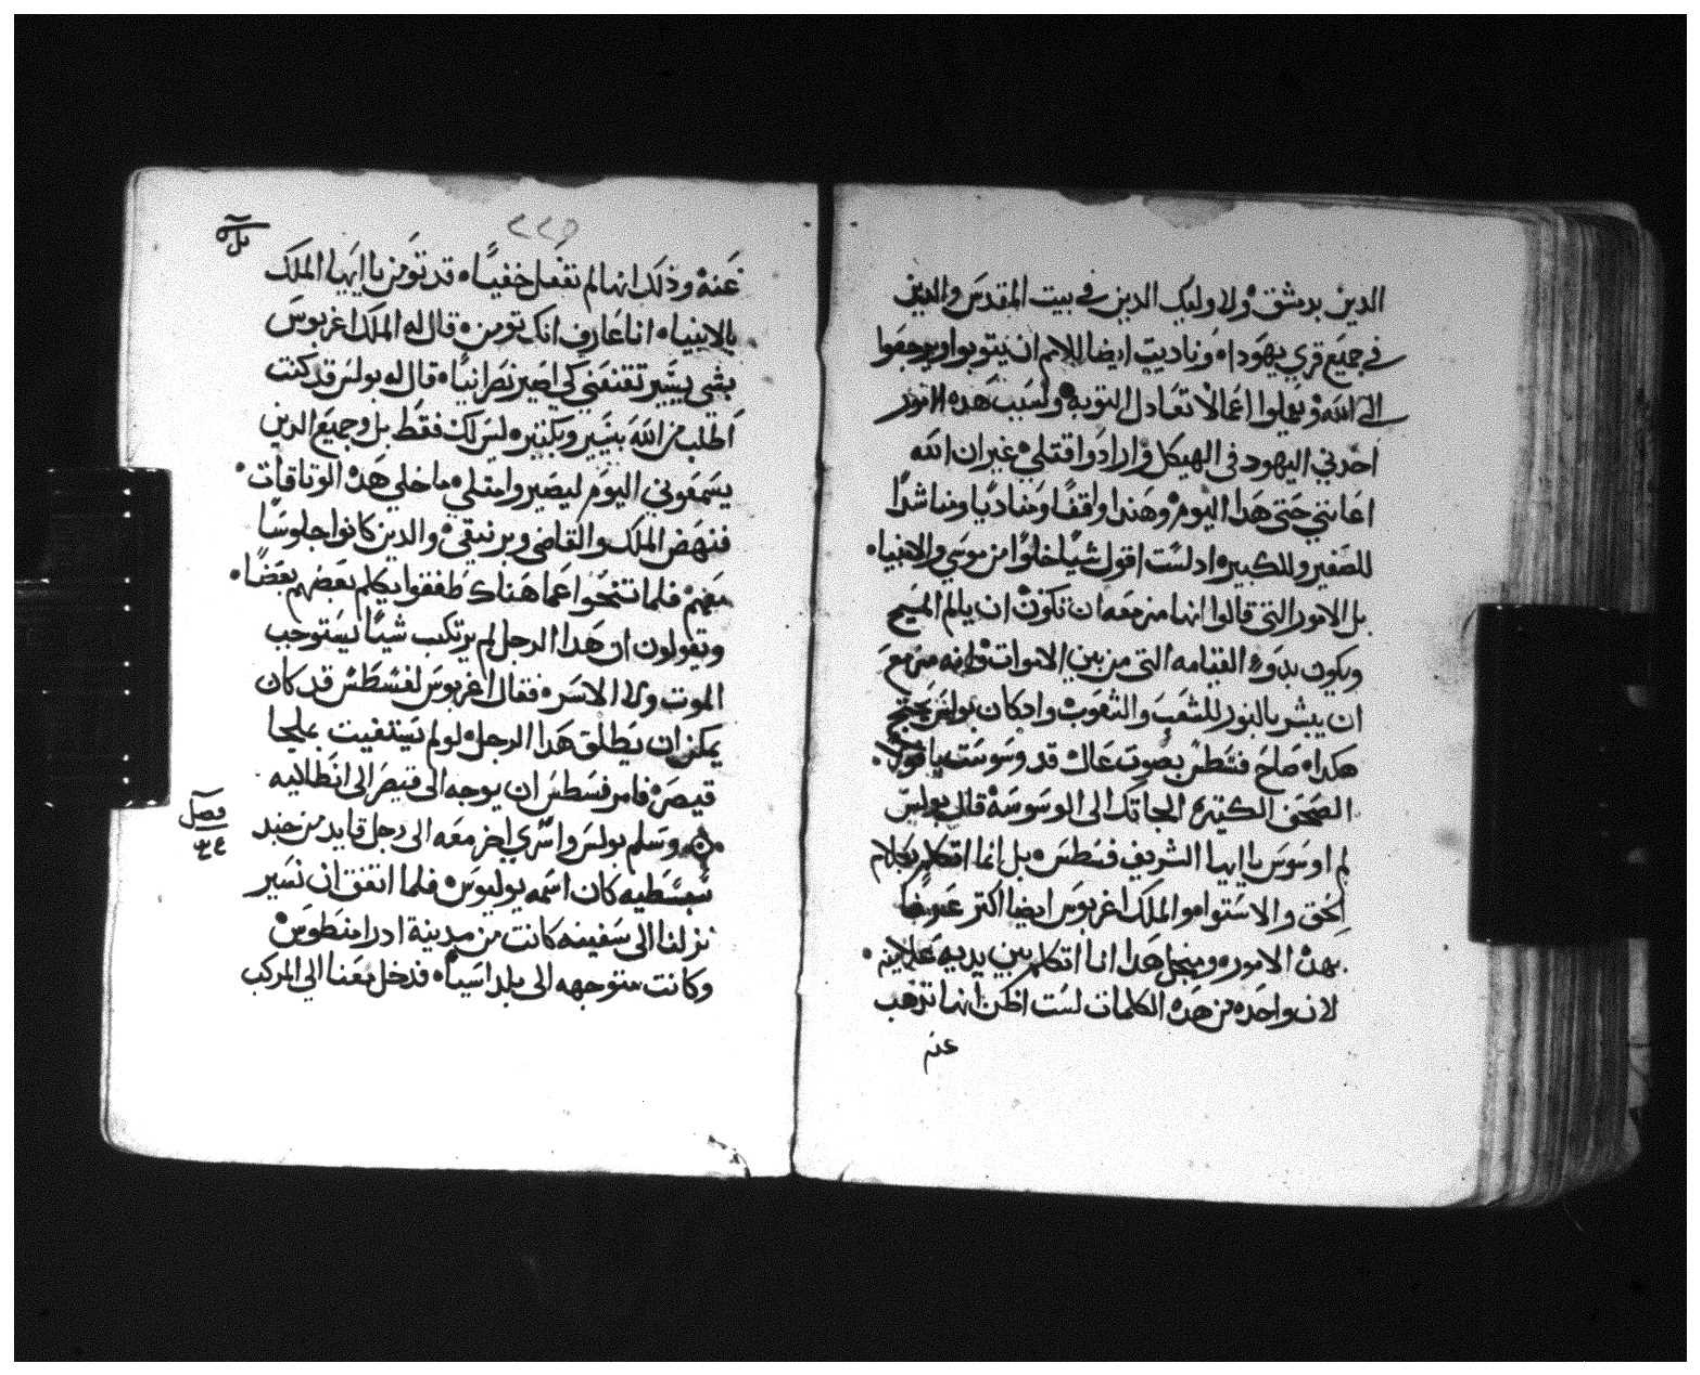 الدين بدمشق ولاوليك الدين في بيت المقدس والدين
في جميع قري يهودا ه وناديت ايضا للامم ان يتوبوا ويرجعوا
الى الله ويعملوا اعمالا تعادل التوبه ولسبب هده الامور
اخدني اليهود في الهيكل وارادوا قتلي غير ان الله
اعانني حتى هدا اليوم وهندا واقفا ومناديا ومناشدا
للصغير وللكبيره ادلست اقول شيا خلوا من موسي والانبياه
بل الامور التي قالوا انها مزمعه ان تكون ان يالم المسيح
ويكون بدوء القيامه التي من بين الاموات وانه مزمع
ان يبشر بالنور للشعب والشعوب وادكان بولس يحتج
هكدا ه صاح فسطس بصوت عال قد وسوست يا بولس
الصحف الكتيره الجاتك الى الوسوسه قال بولس
لم اوسوس يا ايها الشريف فسطس ه بل انما اتكلم بكلام
الحق والاستوا ه والملك اغربوس ايضا اكتر
بهده الاموره ومنجل هدا انا اتكلم بين يديه علانيه
لان واحده من هده الكلمات لست اظن انها تذهب
عنه
٢٢٥
عنه وذلك انها لم تفعل خفيا ه قد تومن يا ايها الملك
بالانبياه انا عارف انك تومن ه قال له الملك اغربوس
بشي يسير تقنعني كي اصير نصرانيا ه قال له بولس قد كنت
اطلب من الله بيسير وبكتير ه ليس لك فقط بل وجميع الدين
يسمعوني اليوم ليصيروا متلي ماخلي هده الوتاقات
فنهض الملك والقاضي وبرنيقي والدين كانوا جلوسا
معهم فلما تنحوا عما هناك طفقوا يكلم بعضهم بعضا
ويقولون ان هدا الرجل لم يرتكب شيا يستوجب
الموت ولا الاسر ه فقال اغربوس لفسطس قد كان
يمكن ان يطلق هدا الرجل لولم يستغيت بملجا
قيصر فامر فسطس ان يوجه الى قيصر الى انطاليه
فصل
٤٣
وسلم بولس واسري اخر معه الى رجل قايد من جند
سبسطيه كان اسمه يوليوس ه فلما اتفق ان نسير
نزلنا الى سفينه كانت من مدينة ادرامنطوس
وكانت متوجهه الى بلد اسيا ه فدخل معنا الي المركب